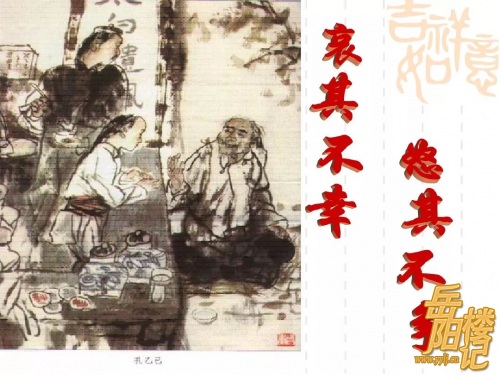 太白遺風
哀其不幸
怒其不
吉祥如意
岳阳楼记
www.yylj.cn
孔乙己